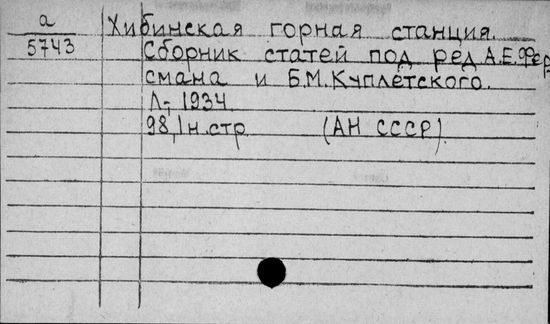 а
5743
Хибинская горная станция.
Сборник статей под ред А.Е.Фер
смана и Б.М.Куплетского.
Л-, 1934
98, 1н.стр. (АН СССР).